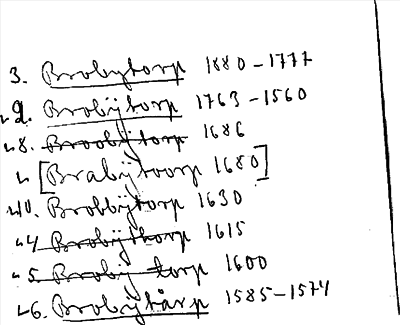 3. Brobytorp 1880-1777
2. Brobÿtorp 1763-1560
8. Broobÿtorp 1686
[Brabÿtoorp 1680]
10. Brobbÿtorp 1630
4 Brobÿthorp 1615
5. Brobÿ torp 1600
6. Brobytårp 1585-1574